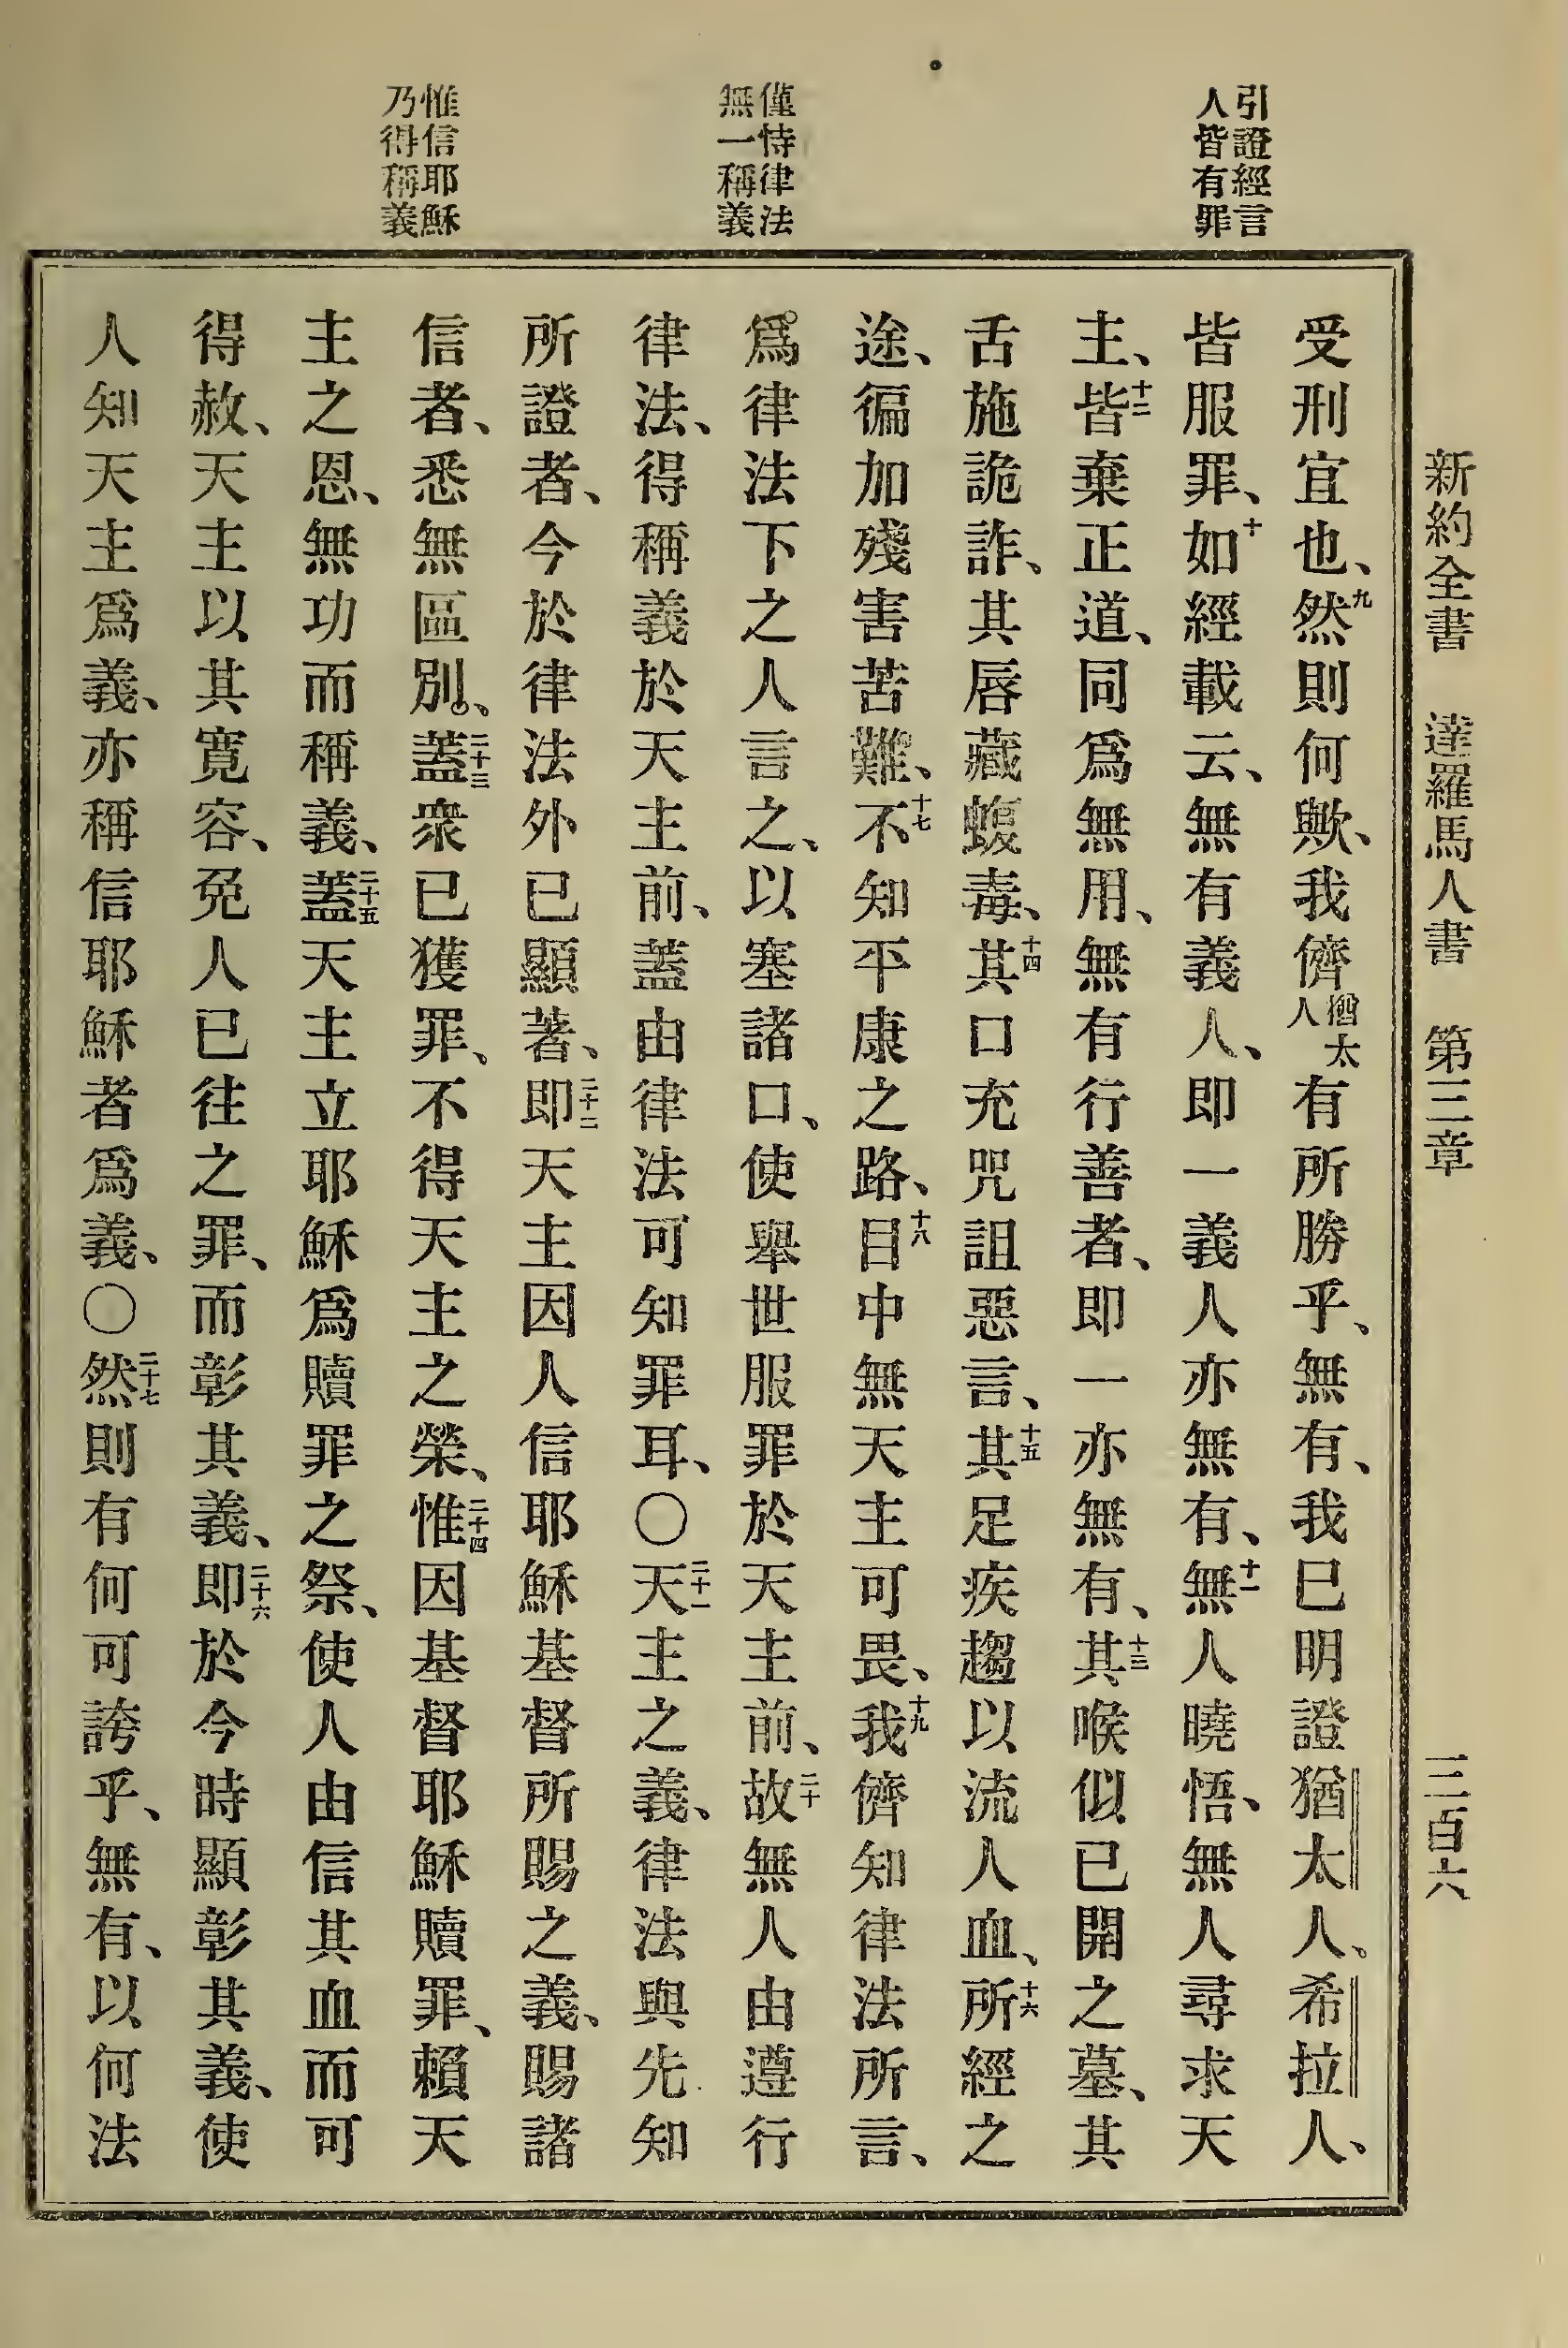 新約全書 達羅馬人書 第三章 三百六
引證經言
人皆有罪
僅恃律法
無一稱義
惟信耶穌
乃得稱義
受刑宜也、九然則何歟、我儕猶太人有所勝乎、無有、我已明證猶太人、希拉人、
皆服罪、十如經載云、無有義人、即一義人亦無有、十一無人曉悟、無人尋求天
主、十二皆棄正道、同爲無用、無有行善者、即一亦無有、十三其喉似已開之墓、其
舌施詭詐、其唇藏蝮毒、十四其口充咒詛惡言、十五其足疾趨以流人血、十六所經之
途、徧加殘害苦難、十七不知平康之路、十八目中無天主可畏、十九我儕知律法所言、
爲律法下之人言之、以塞諸口、使舉世服罪於天主前、二十故無人由遵行
律法、得稱義於天主前、蓋由律法可知罪耳、〇二十一天主之義、律法與先知
所證者、今於律法外已顯著、二十二即天主因人信耶穌基督所賜之義、賜諸
信者、悉無區別、二十三蓋衆已獲罪、不得天主之榮、二十四惟因基督耶穌贖罪、賴天
主之恩、無功而稱義、二十五蓋天主立耶穌爲贖罪之祭、使人由信其血而可
得赦、天主以其寬容、免人已往之罪、而彰其義、二十六即於今時顯彰其義、使
人知天主爲義、亦稱信耶穌者爲義、〇二十七然則有何可誇乎、無有、以何法